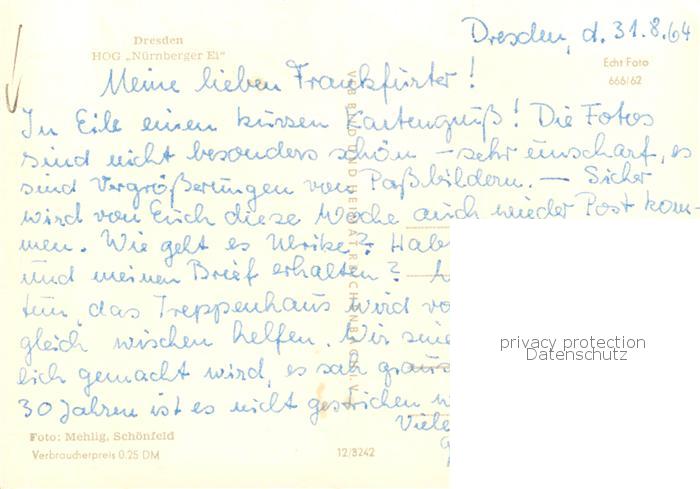 Dresden, d. 31.8.64
Dresden
HOG „Nürnberger Ei"
Echt Foto
666/62
Meine lieben Frankfurter!
In Eile einen kurzen Kartengruß! Die Fotos
sind nicht besonders schön – sehr unscharf, es
sind Vergrößerungen von Paßbildern. — Sicher
wird von Euch diese Woche auch wieder Post kom-
men. Wie geht es Ulrike? Hab
und meinen Brief erhalten?
tun, das Treppenhaus wird vo
gleich wischen helfen. Wir sin
lich gemacht wird, es sah graus
30 Jahren ist es nicht gestrichen w
Viele
VEB BILD UND HEIMAT REICHENBACH I. V.
Foto: Mehlig, Schönfeld
Verbraucherpreis 0,25 DM
12/3242
privacy protection
Datenschutz